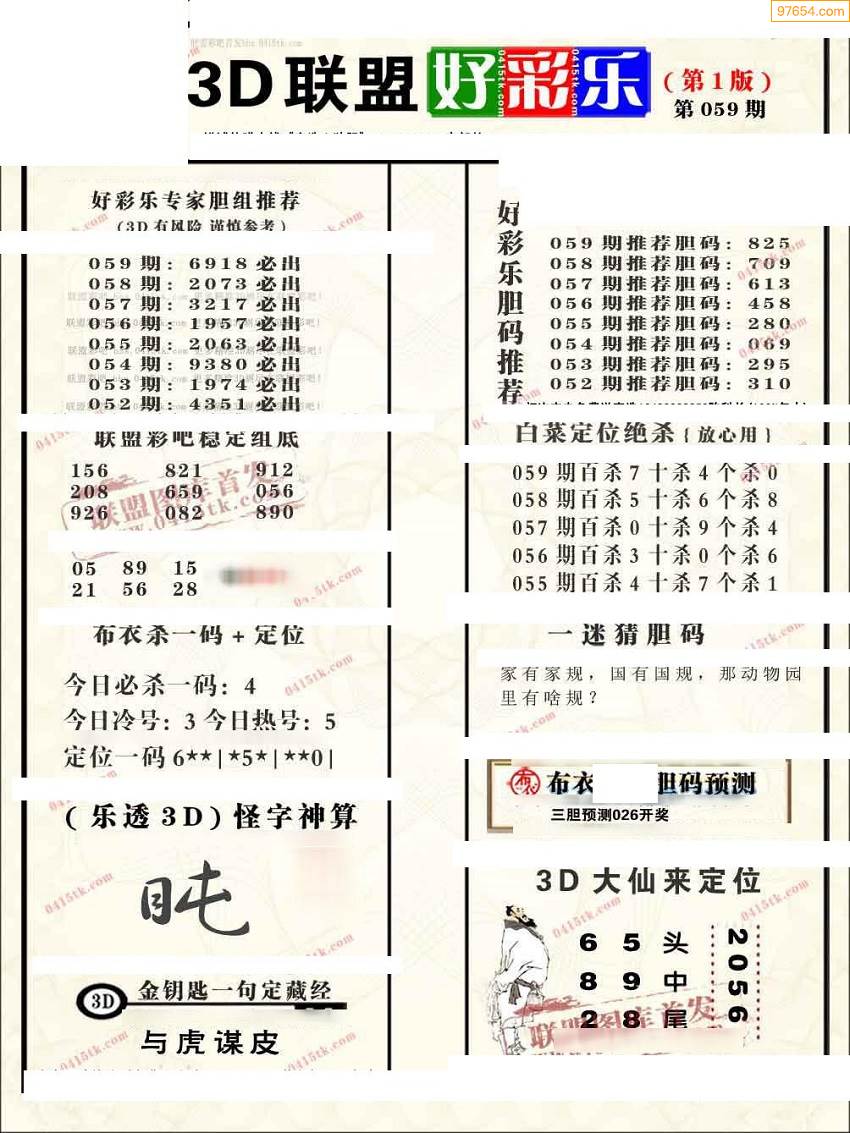 97654.com
3D联盟好彩乐
(第1版)
第059期
好彩乐专家胆组推荐
(3D有风险 谨慎参考)
059期：6918必出
058期：2073必出
057期：3217必出
056期：1957必出
055期：2063必出
054期：9380必出
053期：1974必出
052期：4351必出
联盟彩吧稳定组底
156 821 912
208 659 056
926 082 890
05 89 15
21 56 28
布衣杀一码+定位
今日必杀一码：4
今日冷号：3 今日热号：5
定位一码6**|*5*|**0|
(乐透3D)怪字神算
3D
金钥匙一句定藏经
与虎谋皮
好彩乐胆码推荐
059期推荐胆码：825
058期推荐胆码：709
057期推荐胆码：613
056期推荐胆码：458
055期推荐胆码：280
054期推荐胆码：069
053期推荐胆码：295
052期推荐胆码：310
白菜定位绝杀{放心用}
059期百杀7十杀4个杀0
058期百杀5十杀6个杀8
057期百杀0十杀9个杀4
056期百杀3十杀0个杀6
055期百杀4十杀7个杀1
一迷猜胆码
家有家规，国有国规，那动物园
里有啥规？
布衣
布衣 胆码预测
三胆预测026开奖
3D大仙来定位
6 5 头
8 9 中
2 8 尾
2056
联盟图库首发
www.0415tk.com
联盟图库首发
0415tk.com